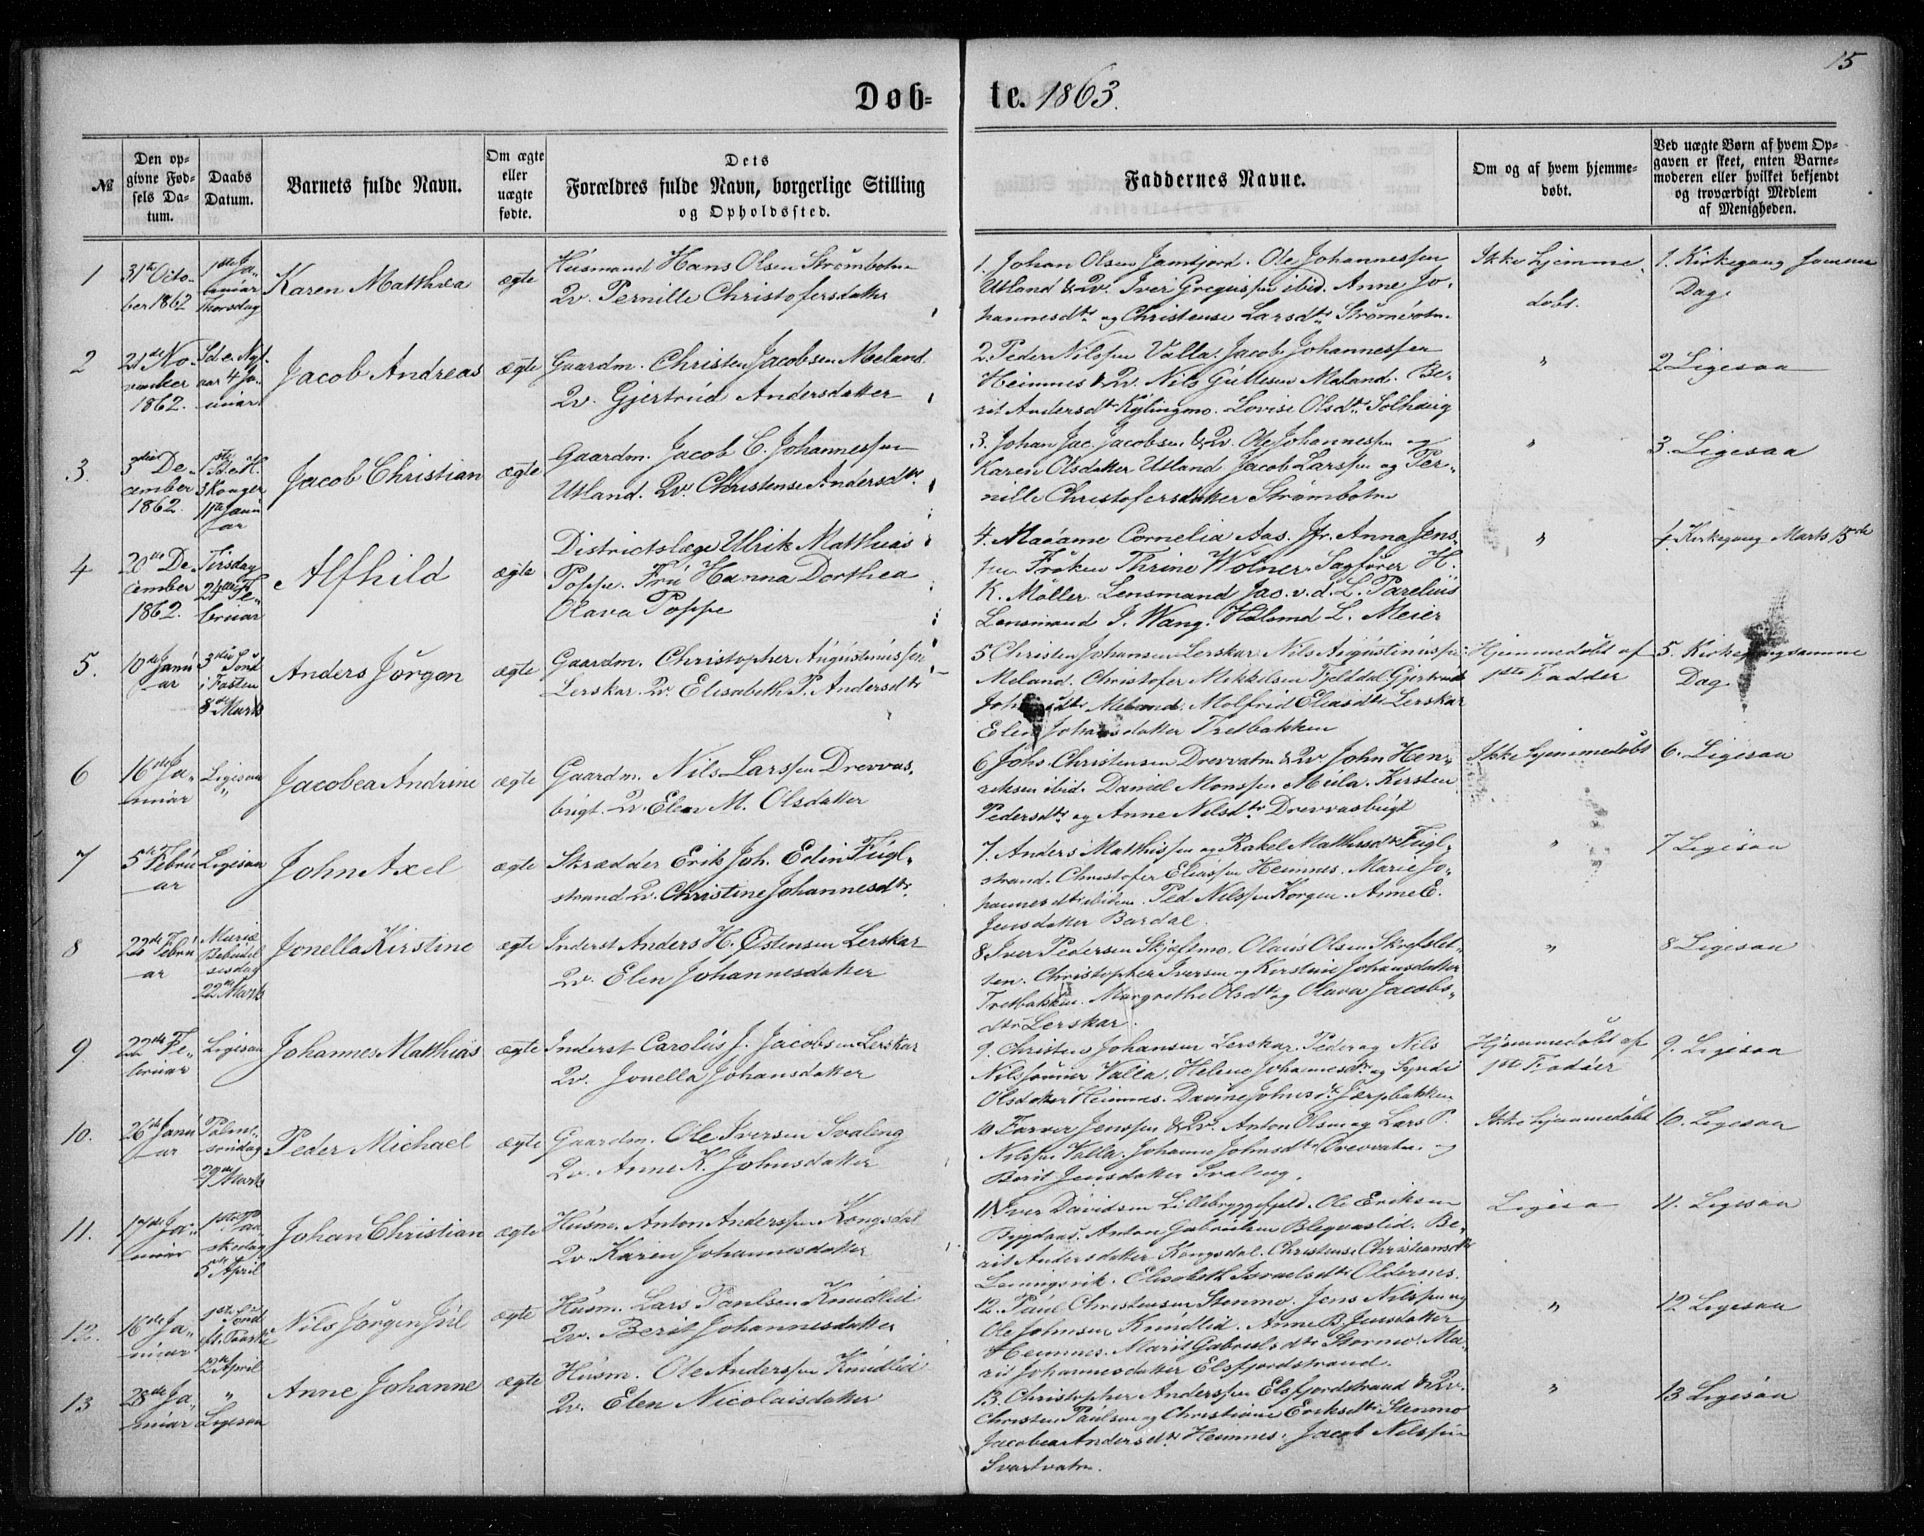 15
Døb-te. 1863.
№
Den op-
givne Fød-
sels Da-
tum.
Daabs
Datum.
Barnets fulde Navn.
Om ægte
eller
uægte
fødte.
Dets
Forældres fulde Navn, borgerlige Stilling
og Opholdssted.
Faddernes Navne.
Om og af hvem hjemme-
døbt.
Ved uægte Børn af hvem Op-
gaven er skeet, enten Barne-
moderen eller hvilket bekjendt
og troværdigt Medlem
af Menigheden.
1
31te Octo-
ber 1862
1ste Ja-
nuar
Thorsdag
Karen Matthea
ægte
Husmand Hans Olsen Strømbotn
Qv. Pernille Christofersdatter
1. Johan Olsen Jamtjord. Ole Johannessen
Utland & Qv. Iver Gregussen ibid. Anne Jo-
hannesdtr og Christense Larsdtr Strømbotn.
Ikke hjemme
døbt.
1. Kirkegang samme
Dag.
2
21de No-
vember
1862.
Sd. e. Nyt-
aar 4 Ja-
nuar
Jacob Andreas
ægte
Gaardm. Christen Jacobsen Meland
Qv. Gjertrud Andersdatter
2. Peder Nilssen Valla. Jacob Johannessen
Heimnes & Qv. Nils Gullesen Maland. Be-
rit Andersdtr Kylingmo. Lovise Olsdtr Solhaug
"
2 Ligesaa
3.
3die De-
cember
1862.
1ste S. e. H.
3 Konger
11te Janu
ar
Jacob Christian
ægte
Gaardm. Jacob C. Johannessen
Utland. Qv. Christense Andersdtr.
3. Johan Jac. Jacobsen & Qv. Ole Johannessen og
Karen Olsdatter Utland Jacob Larssen og Per-
nille Christofersdatter Strømbotn
"
3. Ligesaa
4
20de De-
cember
1862.
Tirsdag
24de Fe-
bruar
Alfhild
ægte
Districtslæge Ulrik Matthias
Poppe. Fru Hanna Dorthea
Olava Poppe
4. Madame Cornelia Aas. Jfr. Anna Jens-
sen Frøken Thrine Wolner. Sagfører H.
K. Möller. Lensmand Jac. v. d. L. Parelius
Lensmand J. Wang. L. Meier
"
4. Kirkegang Marts 15de
5.
10de Janu
ar
3die Sønd
i Fasten
8de Marts
Anders Jørgen
ægte
Gaardm. Christopher Augustinussen
Lerskar. Qv. Elisabeth P. Andersdtr
5 Christen Johansen Lerskar Nils Augustinussen
Meland. Christofer Mikkelsen Fjelddal Gjertrud
Meland. Molfrid Eliasdtr Lerskar
Elen Johansdatter Tretbakken
Hjemmedøbt af
1ste Fadder
5. Kirkegang samme
Dag
6
16de Ja-
nuar
Ligesaa
"
Jacobea Andrine
ægte
Gaardm. Nils Larssen Drevvas-
bugt. Qv. Elen M. Olsdatter
6 Johs. Christensen Drevvatn & Qv. John Hen-
riksen ibid. Daniel Monssen Mula. Kirsten
Pedersdtr og Anne Nilsdtr Drevvasbugt
Ikke hjemmedøbt
6. Ligesaa
7
5te Febru
ar
Ligesaa
John Axel
ægte
Skrædder Erik Joh. Edin Fugl-
strand Qv. Christine Johannesdtr.
7. Anders Matthissen og Rakel Matthisdtr Fugl-
strand. Christofer Eliassen Heimnes. Marie Jo-
hannesdtr ibidem. Ped Nilssen Korgen. Anne E.
Jensdatter Bardal.
"
7 Ligesaa
8
22de Febru
ar
Mariæ
Bebudel
sesdag
22de Marts
Jonella Kirstine
ægte
Inderst Anders H. Østensen Lerskar
Qv. Elen Johannesdatter
8 Iver Pedersen Skjeftmo. Olaus Olsen Skrefslet-
ten. Christopher Iversen og Kerstine Johansdatter
Tretbakken. Margrethe Olsdtr og Olava Jacobs-
dtr Lerskar.
"
8 Ligesaa
9
22de Fe-
bruar
Ligesaa
Johannes Matthias
ægte
Inderst Carolus J. Jacobsen Lerskar
Qv. Jonella Johansdatter
9. Christen Johansen Lerskar. Peder og Nils
Nilssønner Valla. Helene Johannesdtr og Synde
Olsdatter Heimnes. Davine Johnsdtr Jærpbakken
Hjemmedøbt af
1ste Fadder
9. Ligesaa
10.
26de Janu
ar
Palme-
søndag
29de Marts
Peder Michael
ægte
Gaardm. Ole Iversen Svaleng
Qv. Anne K. Johnsdatter
10 Farver Jenssen & Qv. Anton Olsen og Lars P.
Nilssen Valla. Johanne Johnsdtr Drevvatn. og
Berit Jensdatter Svaleng.
Ikke hjemmedøbt
10. Ligesaa
11.
17de Ja-
nuar
1ste Paa
skedag
5te April
Johan Christian
ægte
Husm. Anton Anderssen Kongsdal
Qv Karen Johannesdatter
11. Iver Davidsen Lillebryggefjeld. Ole Eriksen
Bygdaas. Anton Gabrielsen Bleqvaslid. Be-
rit Andersdatter Kongsdal. Christense Christiansdtr
Leiningsvik. Elisabeth Israelsdtr Oldernes.
Ligesa
11. Ligesaa
12.
16de Ja-
nuar
1ste Sønd
ft. Paaske
12te April
Nils Jørgen Jul
ægte
Husm. Lars Paulsen Knudlid
Qv. Berit Johannesdatter
12. Paul Christensen Stenmo. Jens Nilssen og
Ole Johnsen Knudlid. Anne B. Jensdatter
Heimnes. Marit Gabrielsdtr Stormo. Ma-
rit Johannesdatter Elsfjordstrand.
"
12 Ligesaa
13
28de Ja-
nuar
"
Ligesaa
Anne Johanne
ægte
Husm. Ole Anderssen Knudlid
Qv. Elen Nicolaisdatter
13. Christopher Anderssen Elsfjordstrand & Qv.
Christen Paulsen og Christiane Eriksdtr Stenmo
Jacobea Andersdtr Heimnes. Jacob Nilssen
Svartvatn.
"
13 Ligesaa